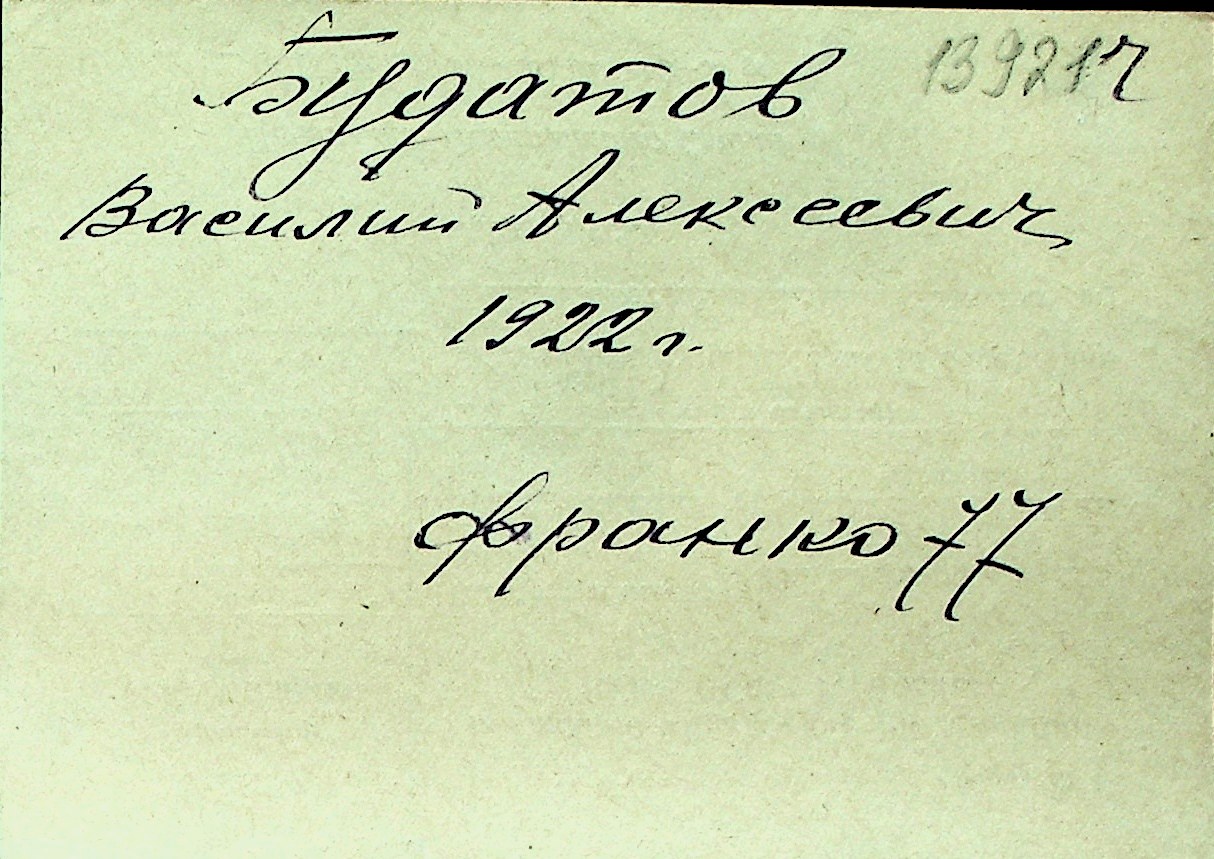 13921ч
Будатов
Василий Алексеевич
1922 г.
Франко 77